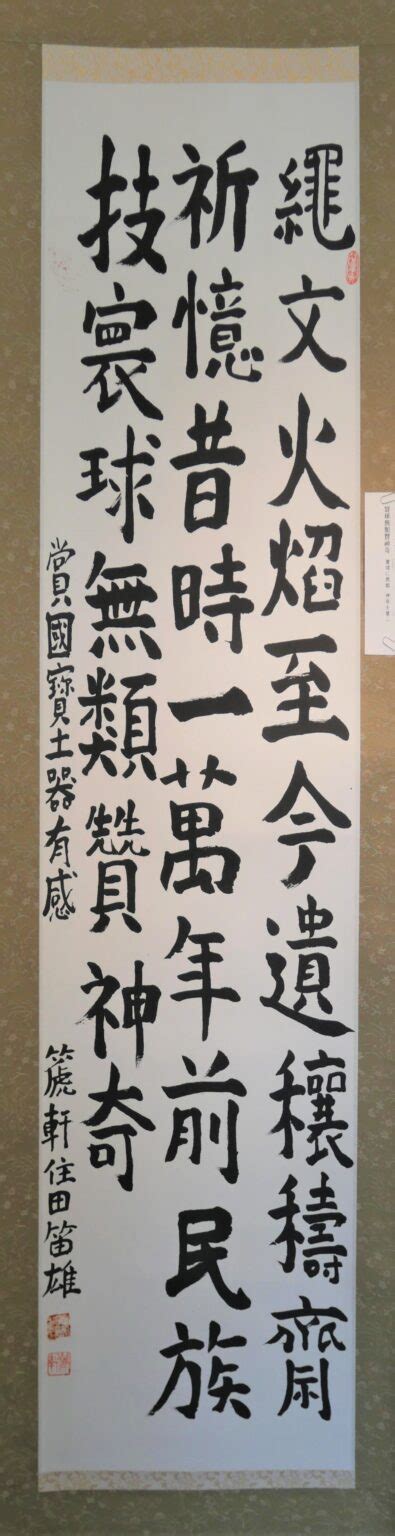 繩文火焰至今遺穰禱齋
祈憶昔時一萬年前民族
技寰球無類贊神奇
賞國寶土器有感
篪軒住田笛雄